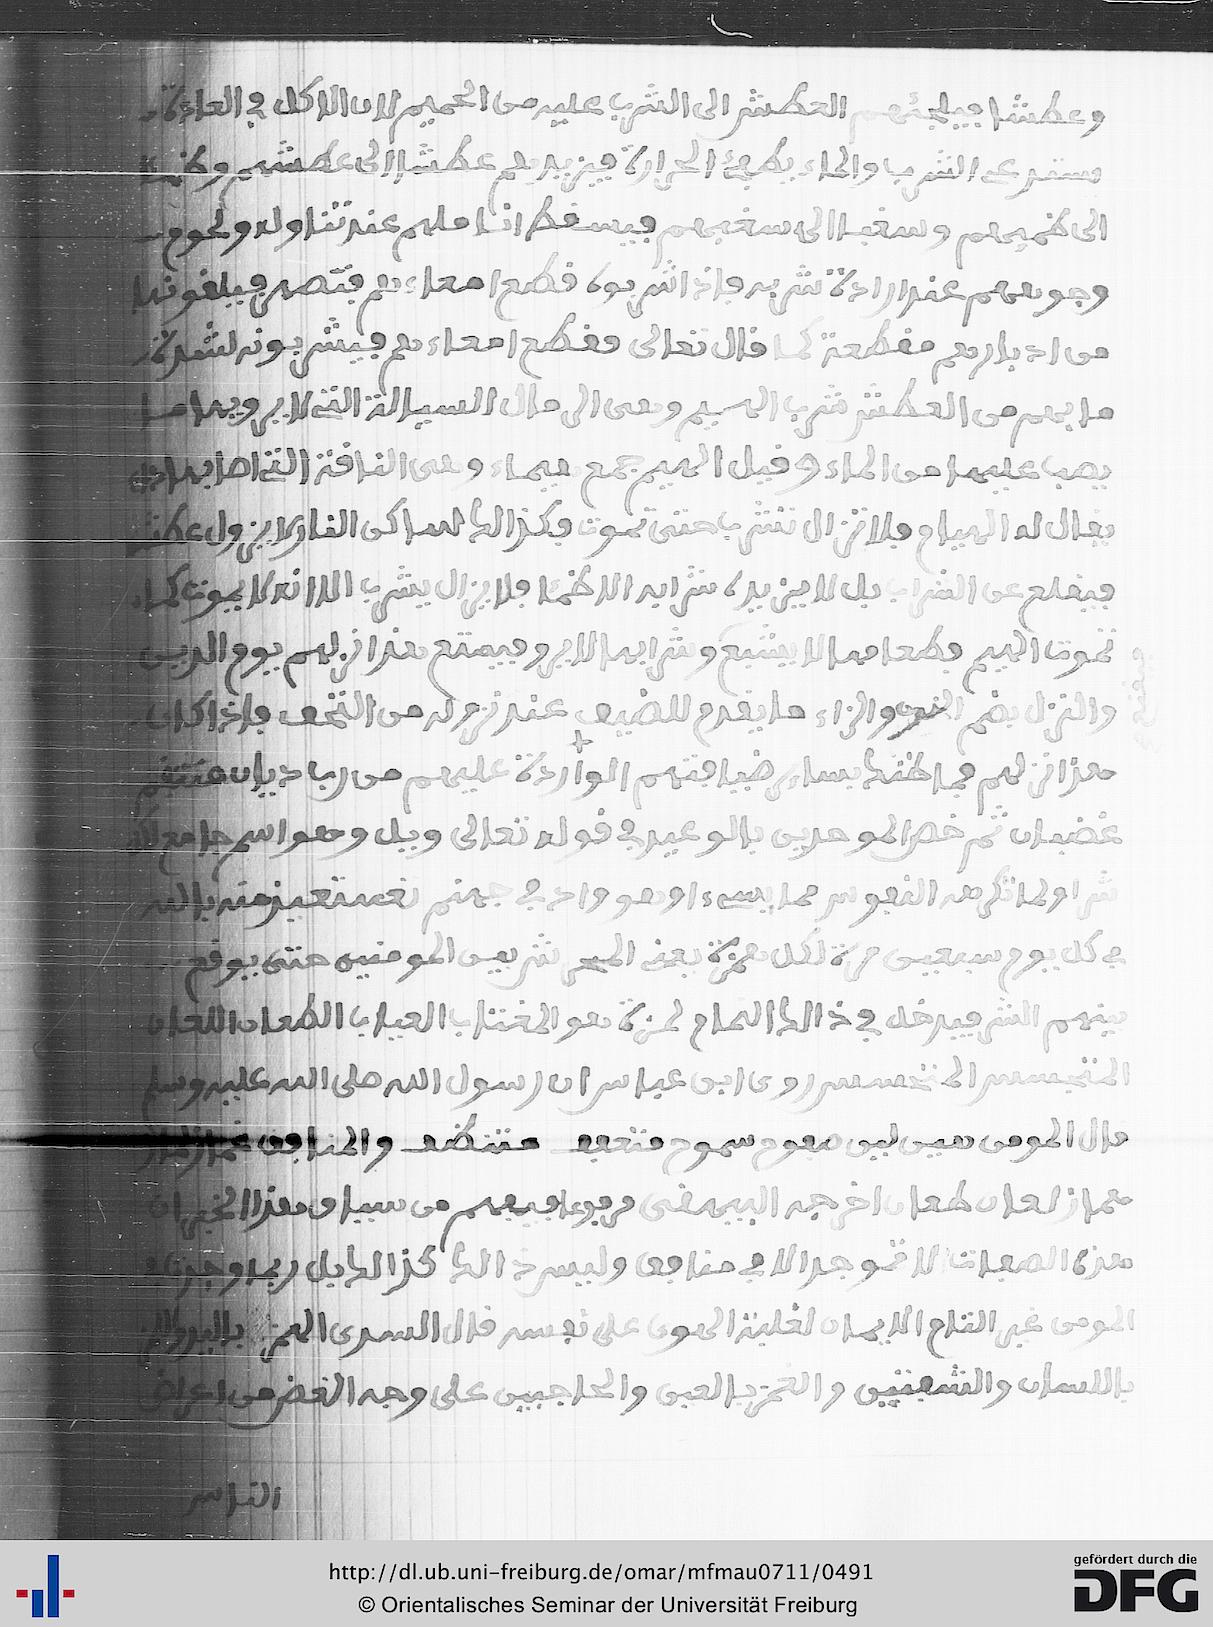 وعطشا فيلجئهم العطش الى الشرب عليه من الحميم لان الاكل في العادة
يستدعي الشرب والماء يطفئ الحرارة فيزيدهم عطشا الى عطشهم
الى ظميهم وسغبا الى سغبهم فيسقط اناملهم عند تناوله ولحوم
وجوههم عند ارادة شربه فاذا شربوه قطع امعاءهم فتصهر فيلقونها
من ادبارهم مقطعة كما قال تعالى فقطع امعاءهم فيشربونه لشدة
ما بهم من العطش شرب الهيم وهي الرمال السيالة التي لا يرويها ما
يصب عليها من الماء وقيل الهيم جمع هيماء وهي الناقة التي اصابها داء
يقال له الهيام فلا تزال تشرب حتى تموت فكذالك ساكن النار لا يزول عطشه
فيقلع عن الشراب بل لا يزيده شرابه الا ظما فلا يزال يشرب الا انه لا يموت كما
تموت الهيم فطعامها لا يشبع وشرابها لا يروي هذا نزلهم يوم الدين
والنزل بضم النون والزاء ما يقدم للضيف عند نزوله من التحف فاذا كان
هذا نزلهم فما ظنك بساير ضيافتهم الواردة عليهم من رب ديان منتقم
غضبان ثم خص الموحدين بالوعيد في قوله تعالى ويل وهو اسم جامع لكل
شر او لما تكرهه النفوس مما يسيء او هو واد في جهنم تستعيذ منه بالله
في كل يوم سبعين مرة لكل همزة يعني الشر بين المومنين حتى يوقع
بينهم الشر فيدخل في ذالك النمام لمزة هو المغتاب العياب الطعان اللعان
المتجسس المتحسس روى ابن عباس ان رسول الله صلى الله عليه وسلم
قال المومن هين لين سموح والمنافق غماز لماز
هماز لعان طعان اخرجه البيهقي مرفوعا فيفهم من سياق هذا الخبر ان
هذه الصفات لا توجد الا في منافق وليس ذالك كذالك بل ربما وجدت في
المومن غير التام الايمان لغلبة الهوى على نفسه قال السدي الهمز باليد واللمز
باللسان والشفتين والغمز بالعين والحاجبين على وجه الغض من اعراض
الناس
http://dl.ub.uni-freiburg.de/omar/mfmau0711/0491
© Orientalisches Seminar der Universität Freiburg
gefördert durch die
DFG